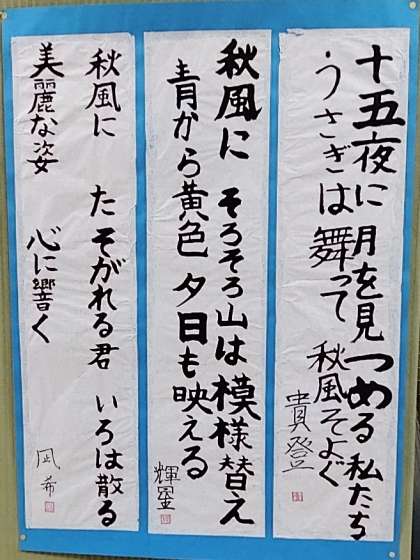 十五夜に 月を見つめる 私たち
うさぎは舞って 秋風そよぐ
貴登
秋風に そろそろ山は 模様替え
青から黄色 夕日も映える
輝星
秋風に たそがれる君 いろは散る
美麗な姿 心に響く
凪希